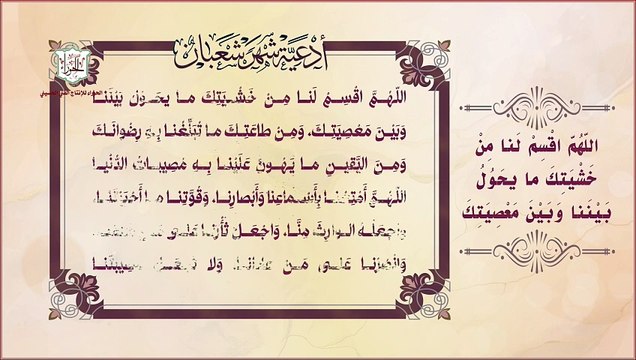 أدعية شهر شعبان
اللهُمَّ اقْسِمْ لَنا مِنْ خَشْيَتِكَ ما يَحُولُ بَيْنَنا
وَبَيْنَ مَعْصِيَتِكَ، وَمِن طاعَتِكَ ما تُبَلِّغُنا بِهِ رِضْوانَكَ
وَمِنَ اليَّقينِ ما يَهُونُ عَلَيْنا بِهِ مُصيباتُ الدُّنْيا
اللهُمَّ أَمْتِعْنا بِأَسْماعِنا وَأَبْصارِنا، وَقُوَّتِنا ما
وَاجْعَلْهُ الوارِثَ مِنَّا، وَاجْعَلْ ثَأْرَنا عَلى مَنْ
وَانْصُرْنا عَلى مَنْ عادانا وَلا تَجْعَلْ مُصيبَتَنا
اللَّهُمَّ اقْسِمْ لَنا مِنْ
خَشْيَتِكَ ما يَحُوْلُ
بَيْنَنا وَبَيْنَ مَعْصِيَتِكَ